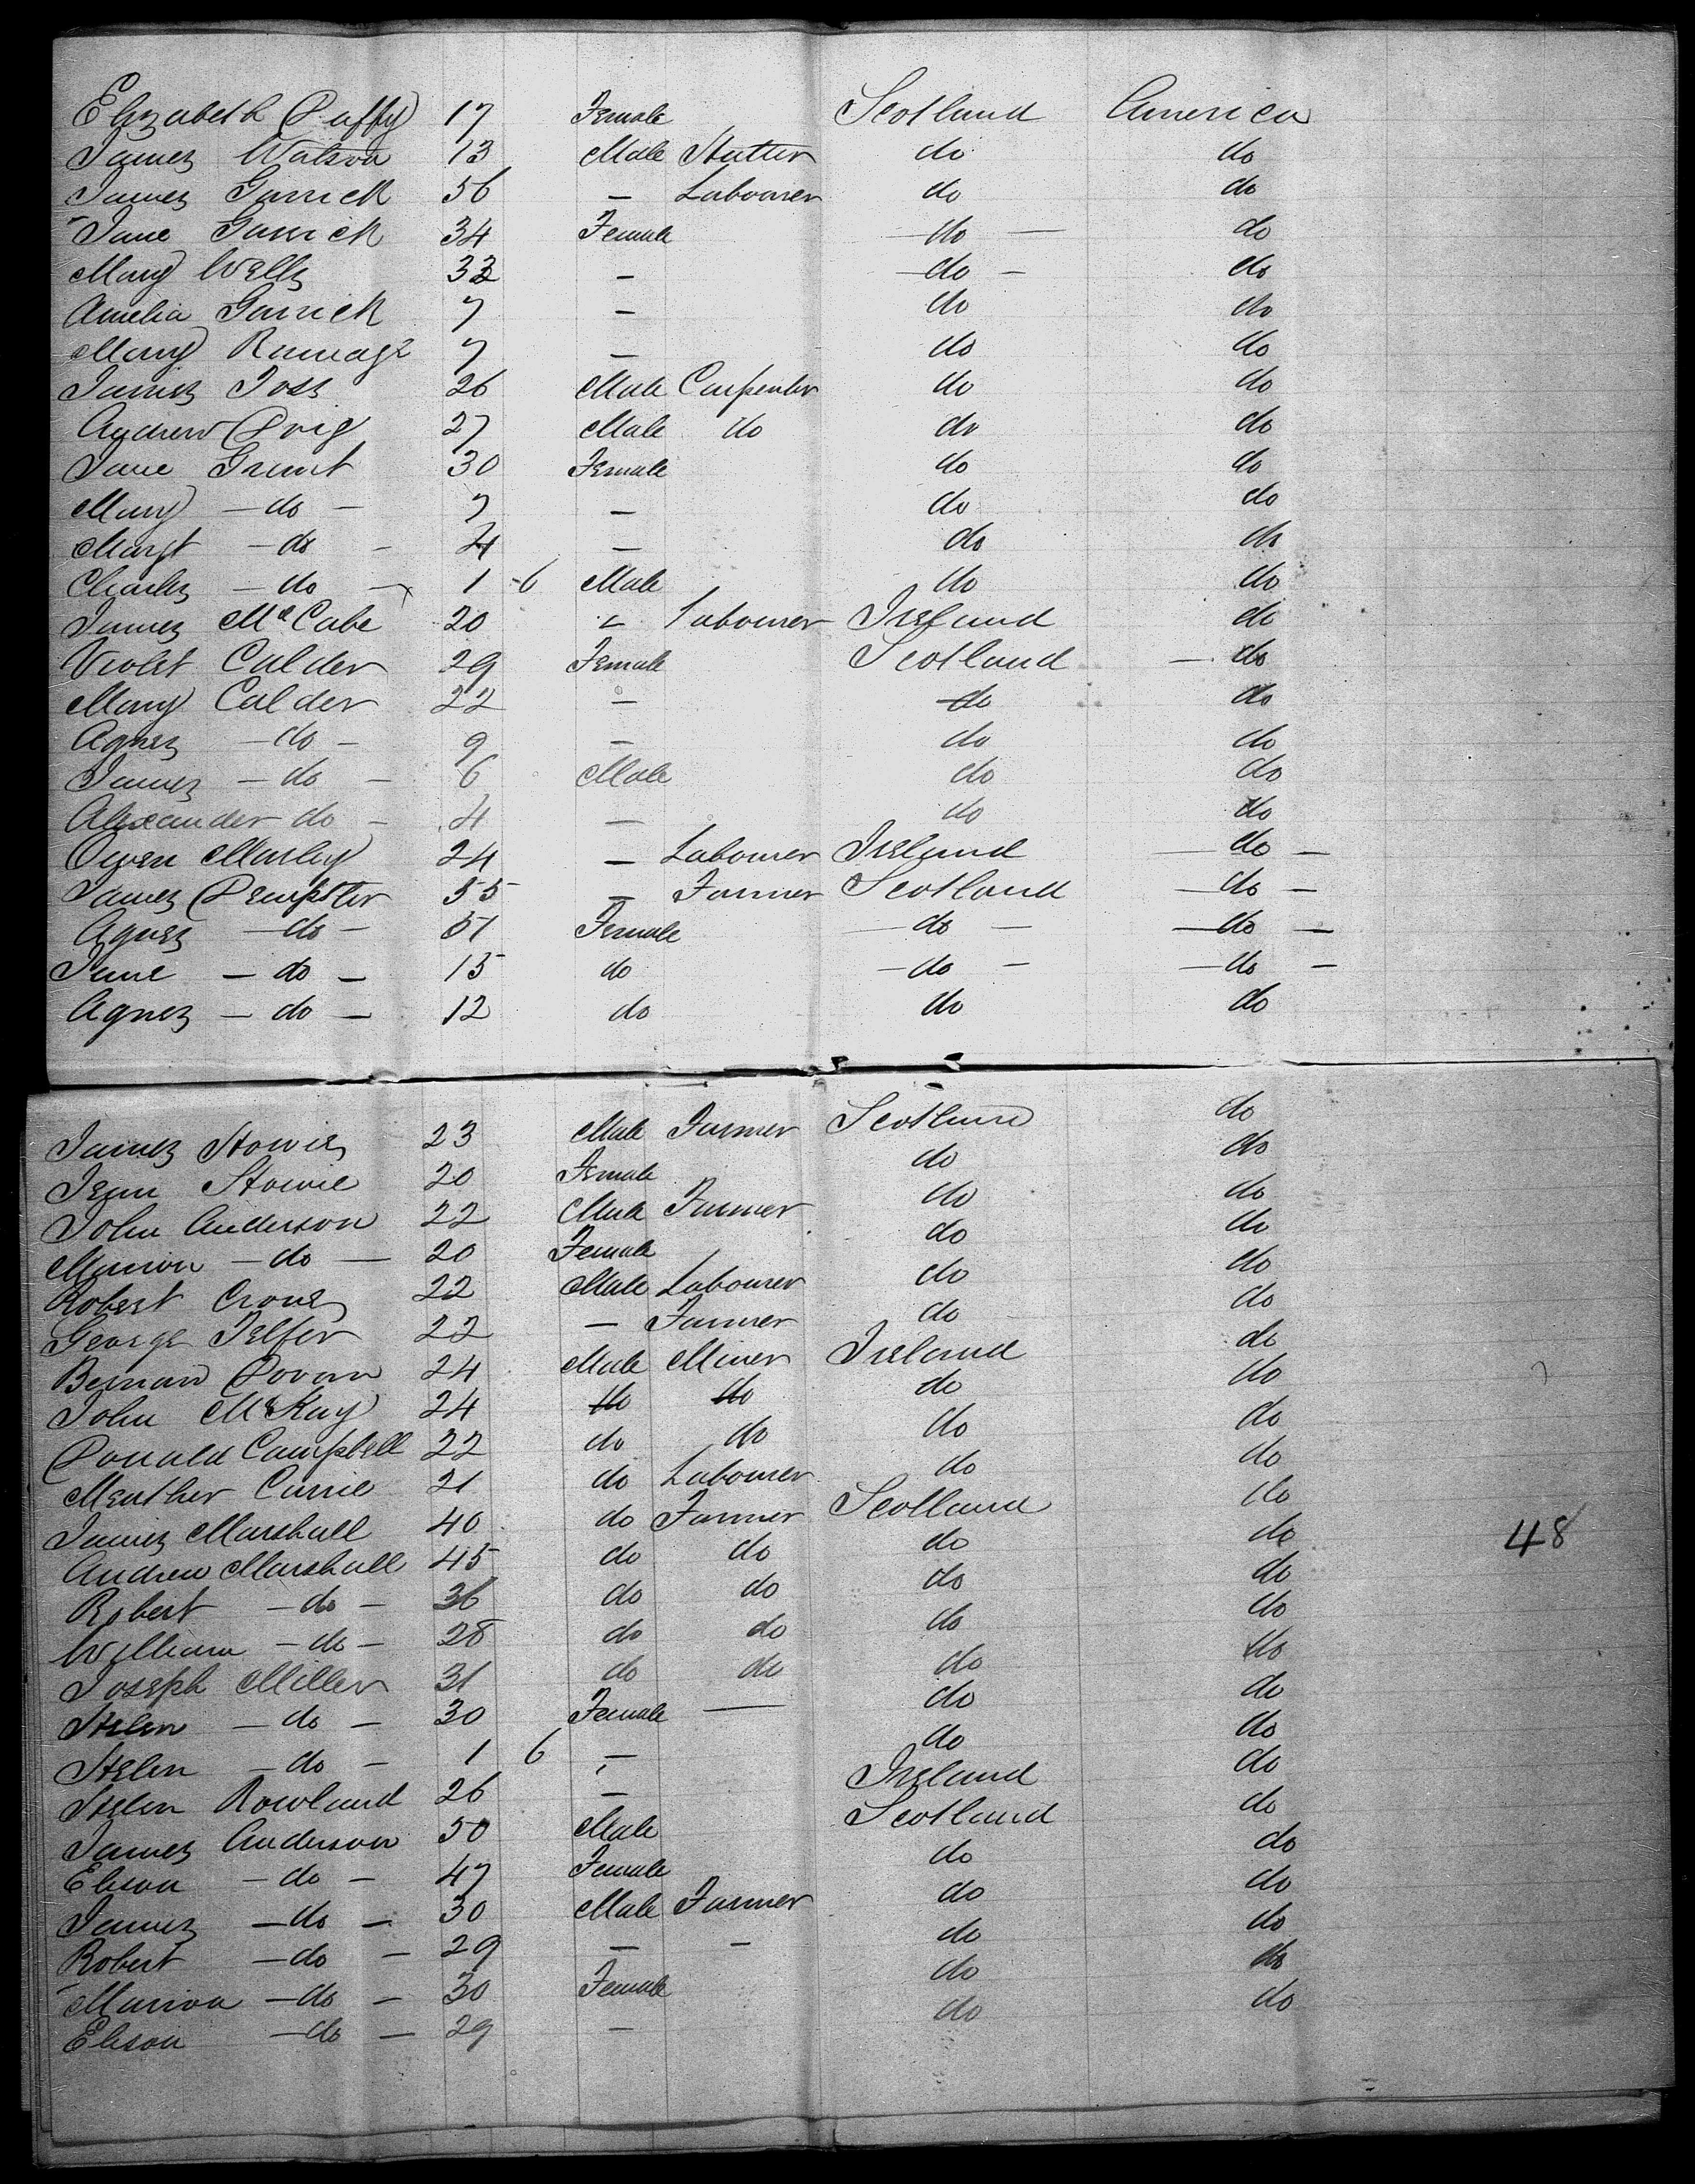 Elizabeth Duffy 17 Female Scotland America
James Watson 13 Male Hatter do do
James Garrick 56 — Labourer do do
Jane Garrick 34 Female — do — do
Mary Wells 33 — — do — do
Amelia Garrick 7 — do do
Mary Ramage 7 — do do
James Ross 26 Male Carpenter do do
Andrew Doig 27 Male do do do
Jane Grant 30 Female do do
Mary — do — 7 — do do
Margt — do — 4 — do do
Charles — do — 1 6 Male do do
James McCabe 20 " Labourer Ireland do
Violet Calder 29 Female Scotland — do
Mary Calder 22 — do do
Agnes — do — 9 — do do
James — do — 6 Male do do
Alexander do — 4 — do do
Owen Marley 24 — Labourer Ireland — do —
James Dempster 55 — Farmer Scotland — do —
Agnes — do — 51 Female — do — — do —
Jane — do — 15 do — do — — do —
Agnes — do — 12 do do do
James Howie 23 Male Farmer Scotland do
Jean Howie 20 Female do do
John Anderson 22 Male Farmer do do
Marion — do — 20 Female do do
Robert Crone 22 Male Labourer do do
George Telfer 22 — Farmer do do
Bernard Dovan 24 Male Miner Ireland do
John McKay 24 do do do do
Donald Campbell 22 do do do do
Meather Currie 21 do Labourer do do
James Marshall 40 do Farmer Scotland do
Andrew Marshall 45 do do do do 48
Robert — do — 36 do do do do
William — do — 28 do do do do
Joseph Miller 31 do do do do
Helen — do — 30 Female — do do
Helen — do — 1 6 — do do
Helen Rowland 26 — Ireland do
James Anderson 50 Male Scotland do
Elison — do — 47 Female do do
James — do — 30 Male Farmer do do
Robert — do — 29 — — do do
Marion — do — 30 Female do do
Elison — do — 29 — do do